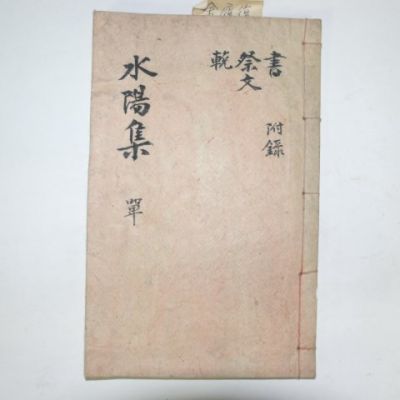 書
祭文
輓
附錄
水陽集
單